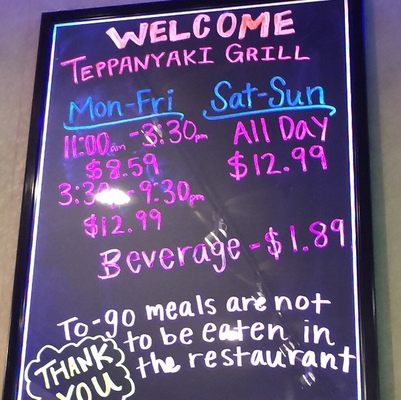 WELCOME
TEPPANYAKI GRILL
Mon-Fri Sat-Sun
11:00am-3:30pm ALL DAY
$8.59 $12.99
3:30-9:30pm
$12.99
Beverage-$1.89
To-go meals are not
to be eaten in
the restaurant
THANK
YOU